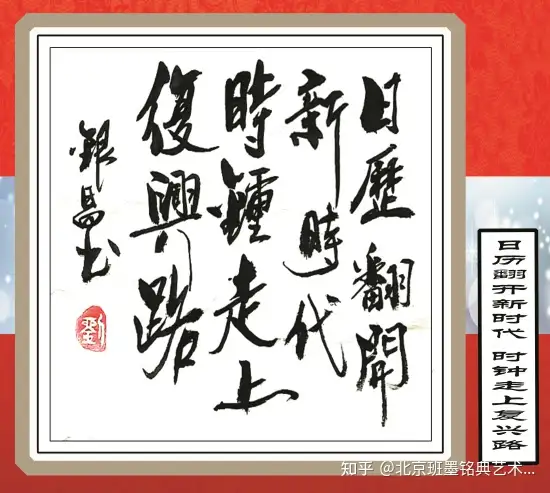 日歷翻開
新時代
時鐘走上
復興路
銀昌书
劉
日历翻开新时代 时钟走上复兴路
知乎 @北京班墨铭典艺术...